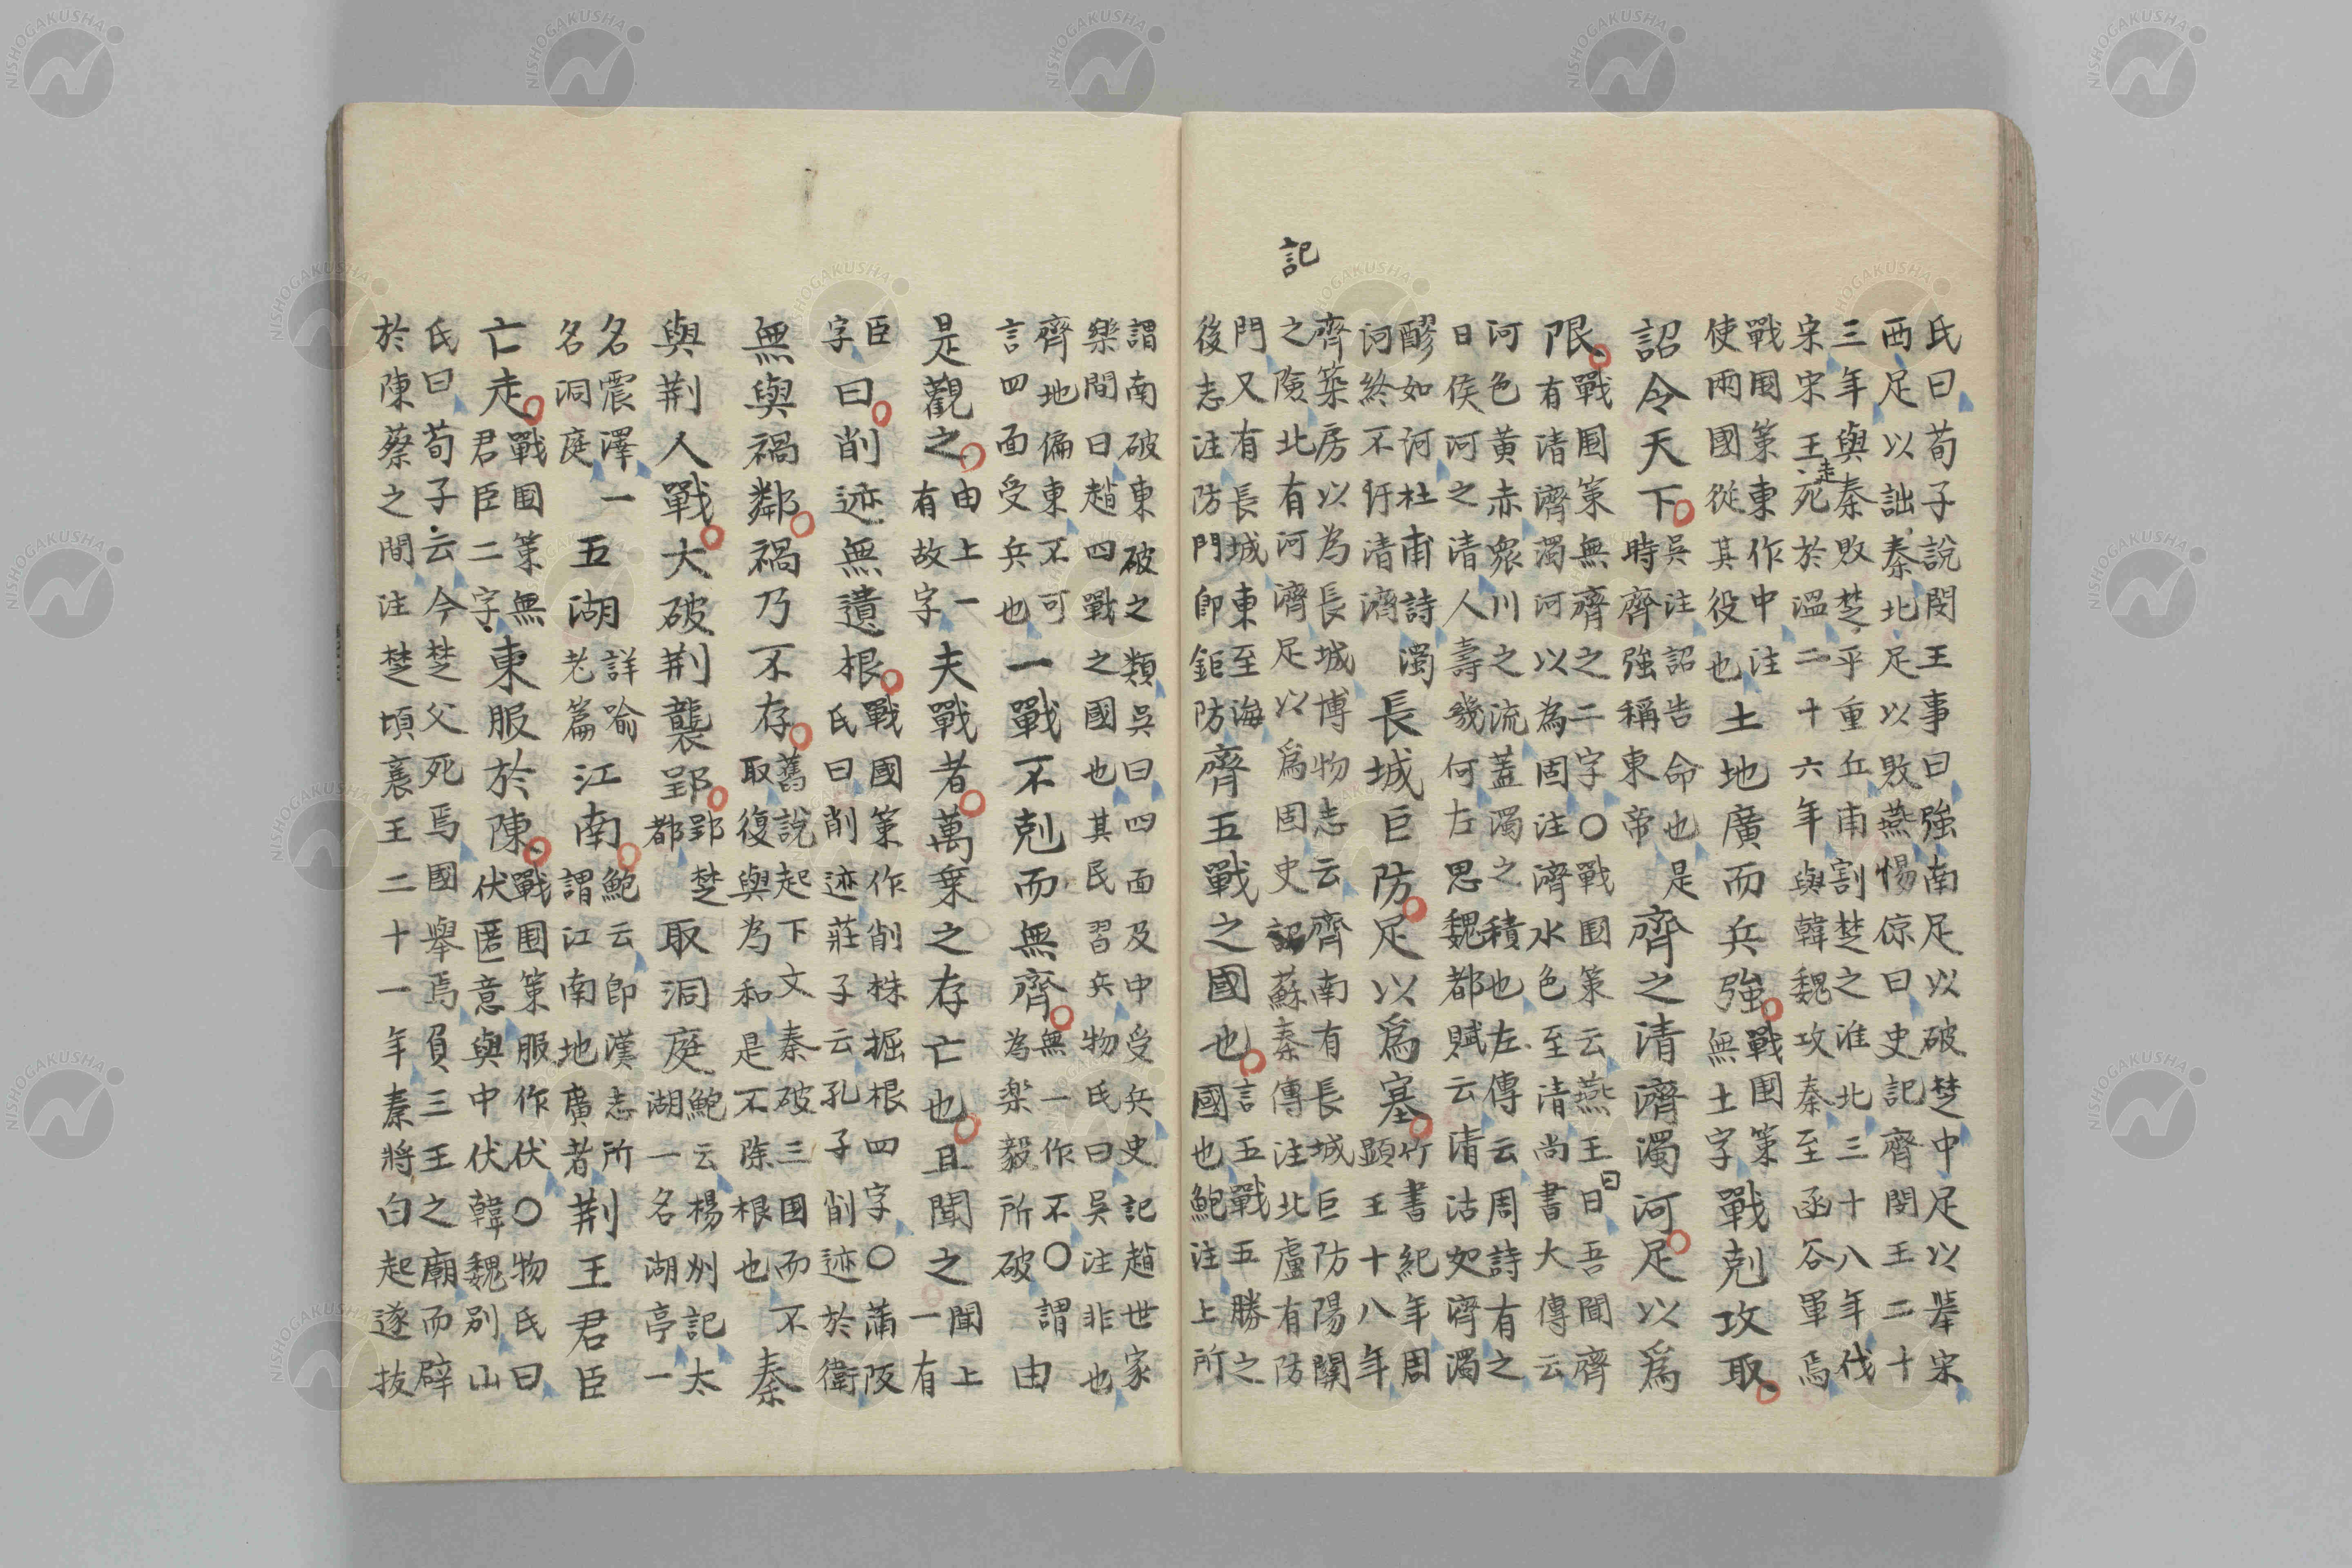 氏曰荀子說閔王事曰強南足以破楚中足以舉宋
西足以詘秦北足以敗燕惕倞曰史記齊閔王二十
三年與秦敗楚乎重丘南割楚之淮北三十八年伐
宋宋王走死於溫二十六年與韓魏攻秦至函谷軍焉
戰国策東作中注
使兩國從其役也
土地廣而兵強
戰国策
無土字
戰剋攻取
詔令天下
吳注詔告命也是
時齊強稱東帝
齊之清濟濁河足以爲
限
戰国策無齊之二字〇戰国策云燕王曰吾聞齊
有清濟濁河以為固注濟水色至清尚書大傳云
河色黃赤衆川之流蓋濁之積也左傳云周詩有之
日俟河之清人壽幾何左思魏都賦云清沽如濟濁
醪如河杜甫詩濁
河終不汙清濟
長城巨防足以爲塞
竹書紀年周
顕王十八年
記
齊築房以為長城博物志云齊南有長城巨防陽関
之險北有河濟足以爲固史蘇秦傳注北盧有防
門又有長城東至海
後志注防門卽鉅防
齊五戰之國也
言五戰五勝之
國也鮑注上所
謂南破東破之類吳曰四面及中受兵史記趙世家
樂間曰趙四戰之國也其民習兵物氏曰吳注非也
齊地偏東不可
言四面受兵也
一戰不剋而無齊
無一作不〇謂
為楽毅所破
由
是觀之
由上一
有故字
夫戰者萬乗之存亡也且聞之
聞上
一有
臣
字
曰削迹無遺根
戰國策作削株掘根四字〇蒲阪
氏曰削迹莊子云孔子削迹於衛
無與禍鄰禍乃不存
舊說起下文秦破三国而不
取復與為和是不除根也
秦
與荆人戰大破荆襲郢
郢楚
都
取洞庭
鮑云楊州記太
湖一名湖亭一
名震澤一
名洞庭
五湖
詳喻
老篇
江南
鮑云即漢志所
謂江南地廣者
荆王君臣
亡走
戰国策無
君臣二字
東服於陳
戰国策服作伏〇物氏曰
伏匿意與中伏韓魏別山
氏曰荀子云今楚父死焉國舉焉負三王之廟而辟
於陳蔡之間注楚頃襄王二十一年秦將白起遂抜